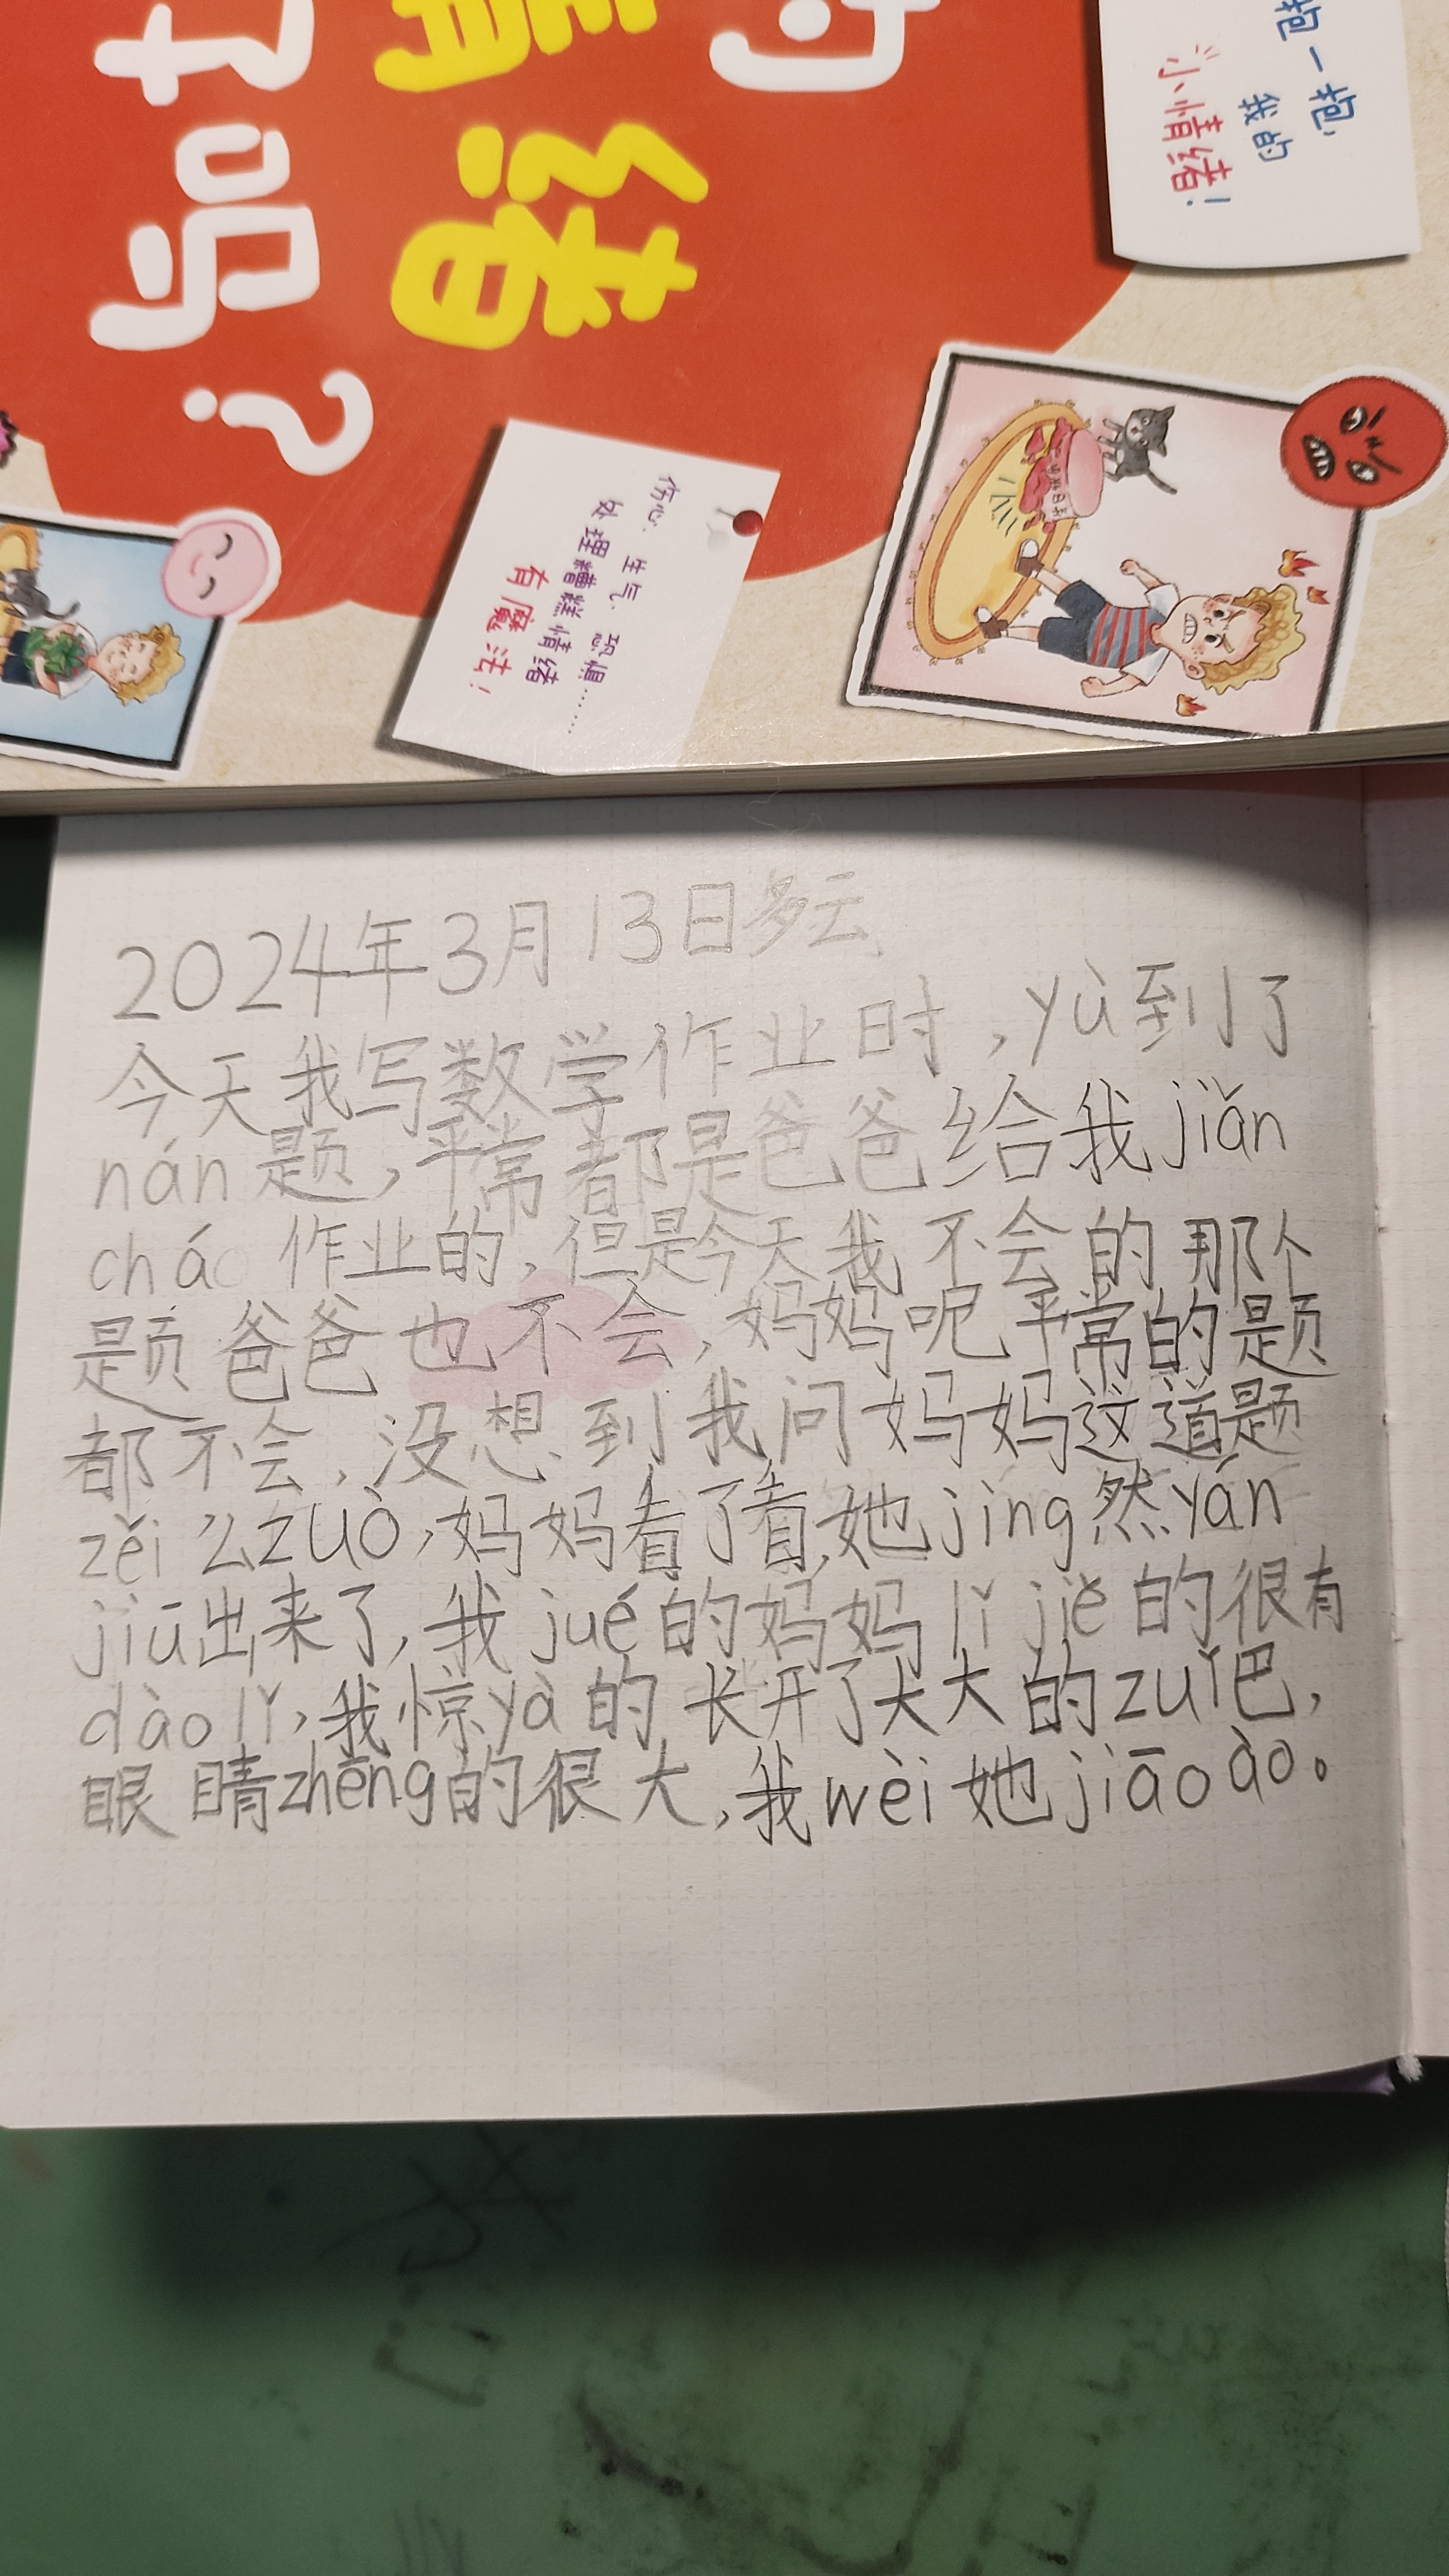 情绪
吗?
抱一抱,
我的
小情绪!
伤心、生气、恐惧……
处理糟糕情绪
有魔法!
2024年3月13日多云
今天我写数学作业时,yù到了
nán题,平常都是爸爸给我jiǎn
chá 作业的,但是今天我不会的那个
题爸爸也不会,妈妈呢平常的题
都不会,没想到我问妈妈这道题
zěi么zuò,妈妈看了看,她jìng然yán
jiū出来了,我jué的妈妈lǐ jiě的很有
dào lǐ,我惊yà的长开了大大的zuǐ巴,
眼睛zhēng的很大,我wèi她jiāo ào。